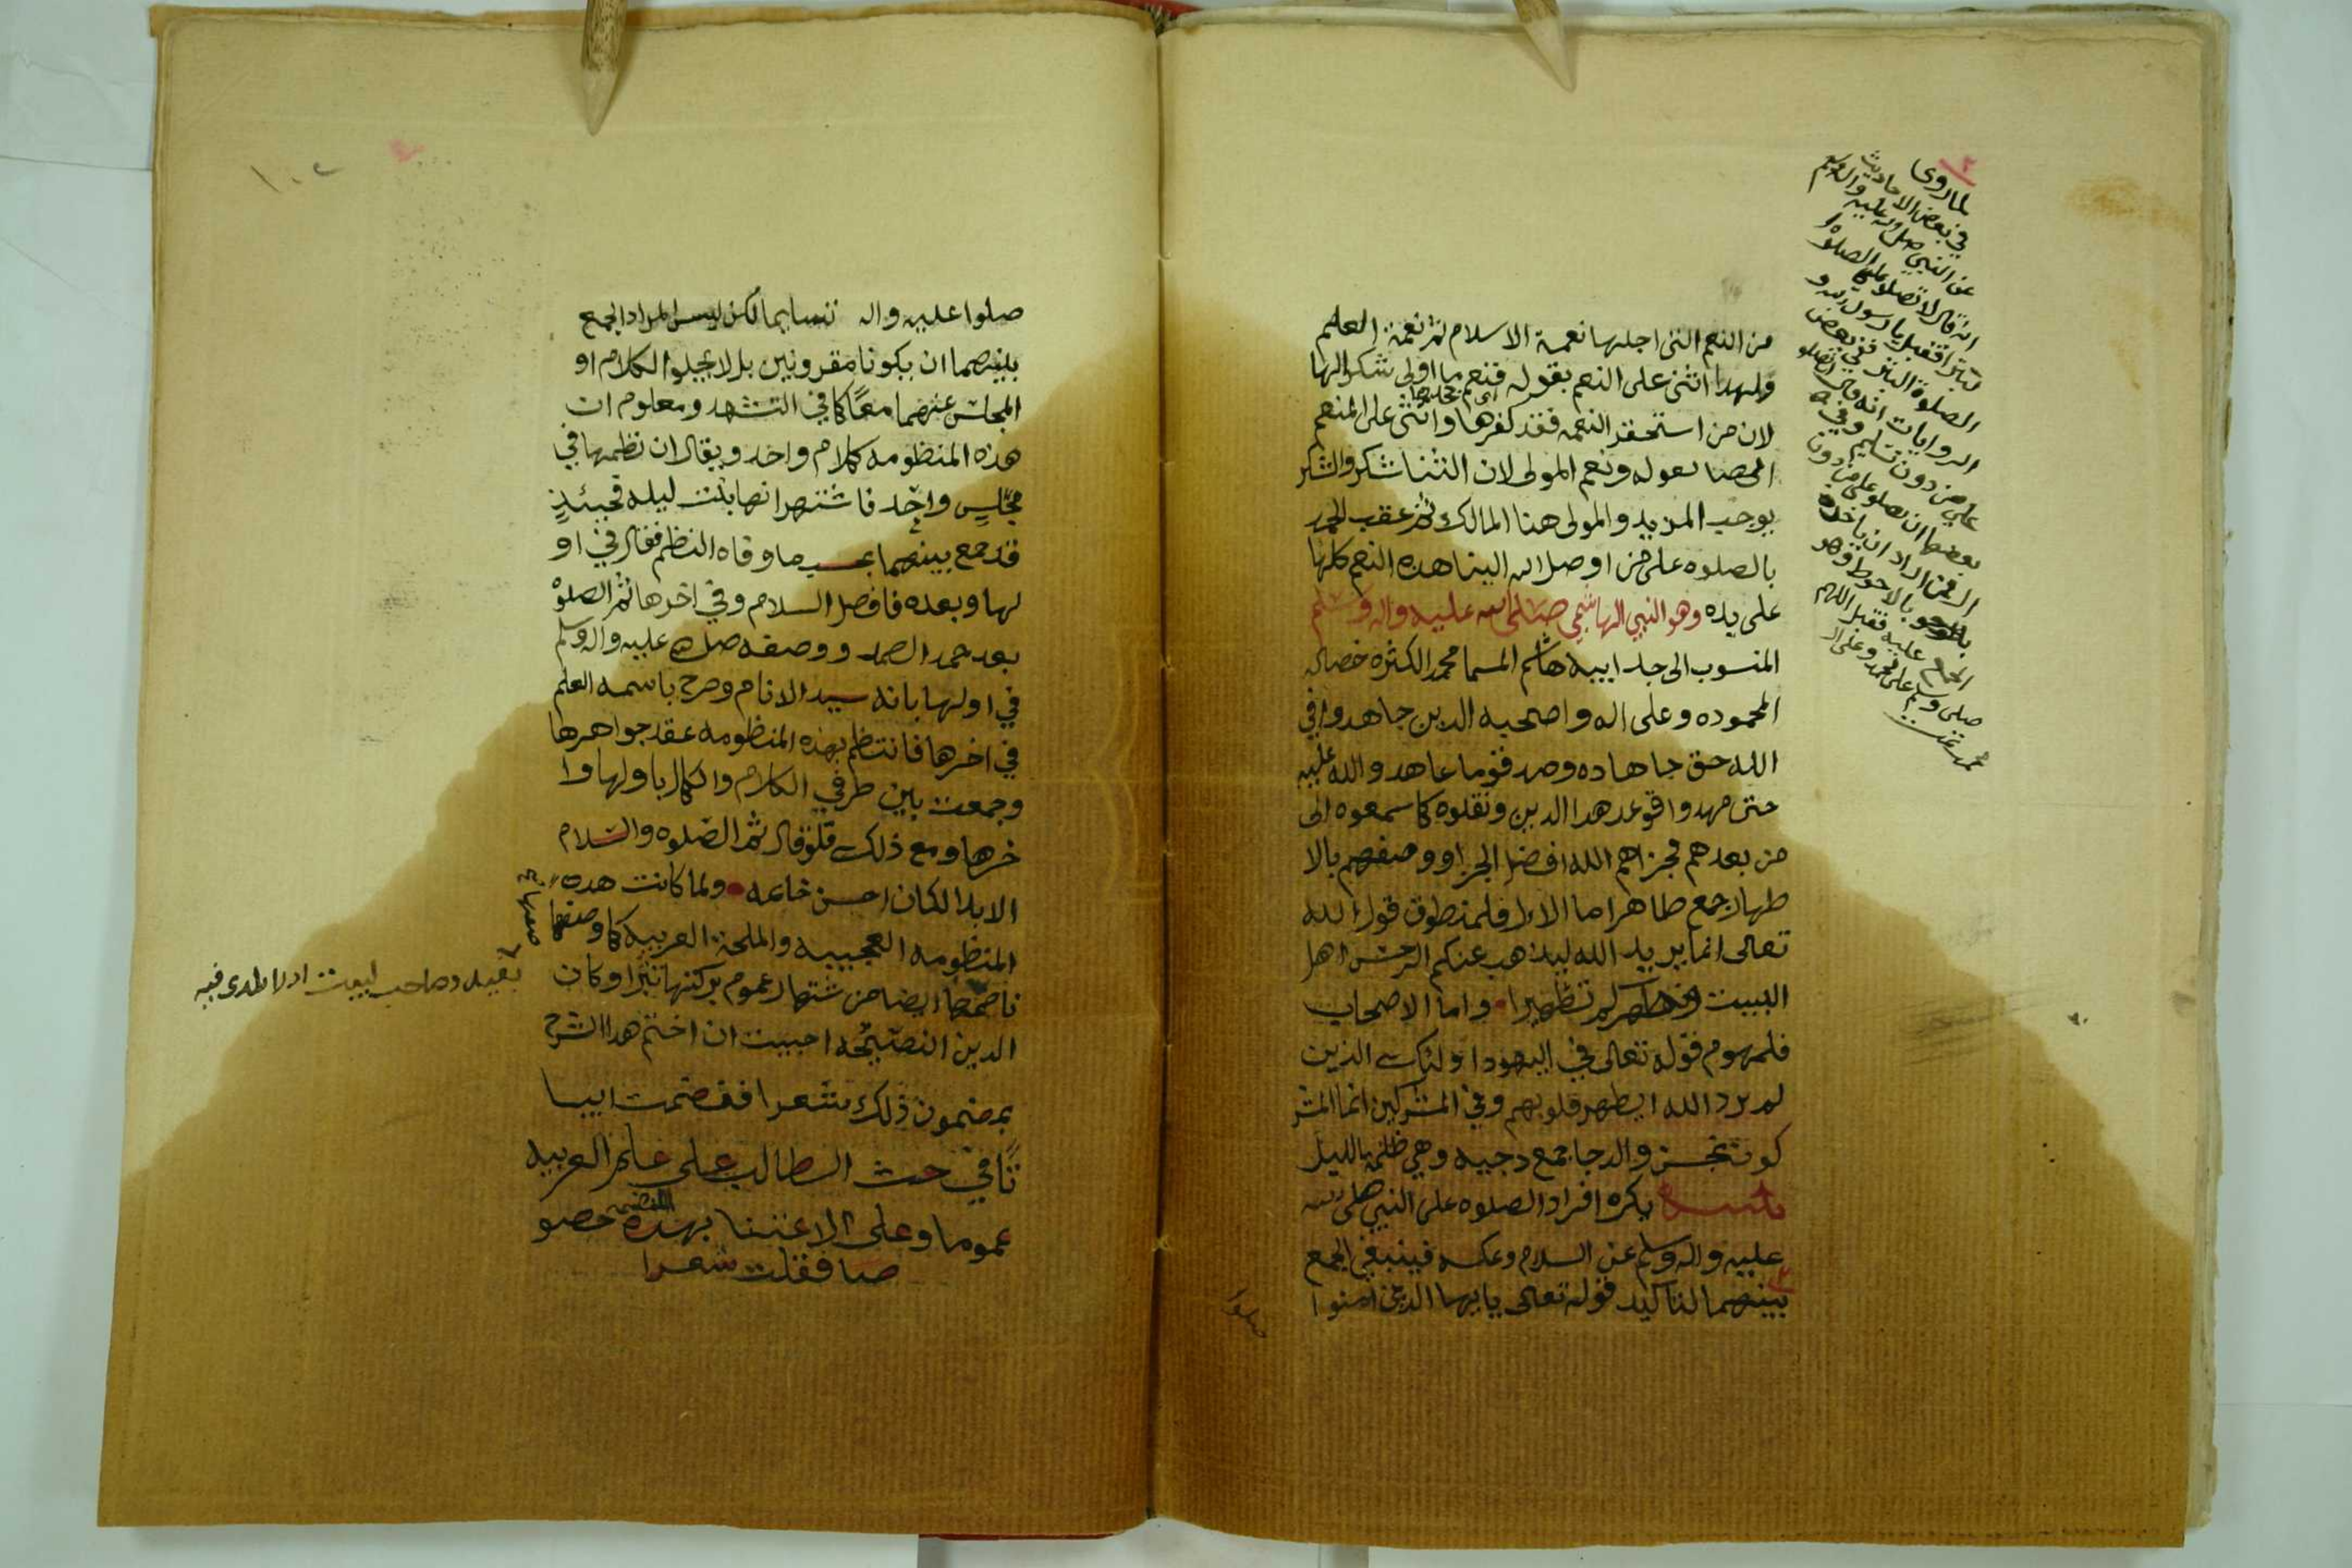 من النعم التي اجلها نعمة الاسلام ثم نعمة العلم
ولهذا اثنى على النعم بقوله فنعم ما اولى شكرا لها
لان من استحقر النعمه فقد كفرها واثنى على المنعم
بقوله ونعم المولى لان الثنا شكر والشكر
يوجب المزيد والمولى هنا المالك ثم عقب الحمد
بالصلوه على من اوصل الله الينا هذه النعم كلها
على يده وهو النبي الهاشمي صلى الله عليه واله وسلم
المنسوب الى جد ابيه هاشم المسما محمد الكثره خصاله
المحموده وعلى اله واصحبه الدين جاهدوا في
الله حق جهاده وصدقوما عاهدو الله عليه
حتى مهدوا قوعد هدا الدين ونقلوه كما سمعوه الى
من بعدهم فجزاهم الله افضل الجزا ووصفهم بالا
طهار جمع طاهر اما الال فلمنطوق قول الله
تعالى انما يريد الله ليذهب عنكم الرجس اهل
البيت ويطهركم تطهيرا واما الاصحاب
فلمهوم قوله تعالى في اليهود اولئك الذين
لم يرد الله ان يطهر قلوبهم وفي المشركين انما المشر
كون نجس والدجا جمع دجيه وهي ظلمة الليل
تنبيه يكره افراد الصلوه على النبي صلى الله
عليه واله وسلم عن السلام وعكسه فينبغي الجمع
بينهما لتاكيد قوله تعالى يا ايها الدين امنوا
صلوا
لما روى
في بعض الاحاديث
عن النبي صلى الله عليه واله وسلم
انه قال لا تصلوا علي الصلوة
البترا فقيل يا رسول الله و
الصلوة البترا ففي بعض
الروايات انه قال ان تصلو
علي من دون تسليم وفي
بعضها ان تصلو علي من دون
صلى وسلم على محمد وعلى ال
محمد
١٠٢
صلوا عليه واله تسليما لكن ليس المراد الجمع
بينهما ان يكونا مقرونين بل لا يخلوا الكلام او
المجلس عنهما معا كما في التشهد ومعلوم ان
هذه المنظومه كلام واحد ويقال ان نظمها في
مجلس واحد فاشتهر انها بنت ليله فحينئذ
قد جمع بينهما بحسب ما وفاه النظم فقال في او
لها وبعده فافضل السلام وفي اخرها ثم الصلوة
بعد حمد الصمد ووصفه صلى الله عليه واله وسلم
في اولها بانه سيد الانام وصرح باسمه العلم
في اخرها فانتظم بهذه المنظومه عقد جواهرها
وجمعت بين طرفي الكلام والكمال باولها وا
خرها ومع ذلك فلو قال ثم الصلوه والسلام
الابدا لكان احسن خاتمه ولما كانت هده
المنظومه العجيبه والملحة العربيه كما وصفها
ناضمها ايضا من شتهار عموم بركتها نثرا وكان
الدين النصيحه احببت ان اختم هدا الشرح
بمضمون ذلك شعرا فقضمت ابيا
تا في حث الطالب على علم العربيه
عموما وعلى الاعتنا بهذه حصو
صا فقلت شعرا